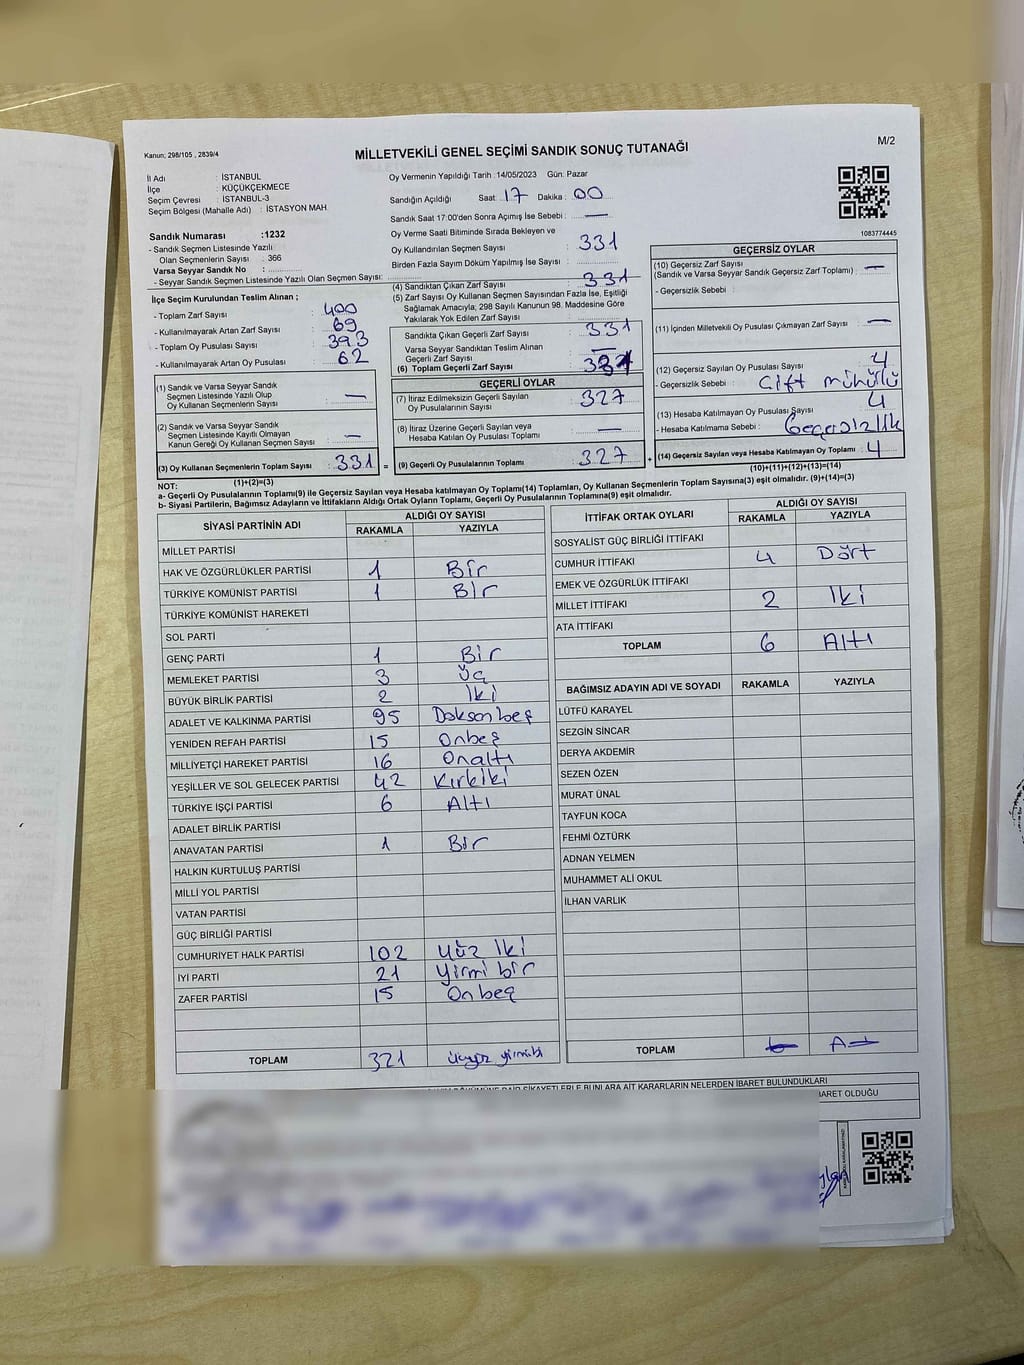 Kanun; 298/105 , 2839/4
MİLLETVEKİLİ GENEL SEÇİMİ SANDIK SONUÇ TUTANAĞI
M/2
İl Adı : İSTANBUL
İlçe : KÜÇÜKÇEKMECE
Seçim Çevresi : İSTANBUL-3
Seçim Bölgesi (Mahalle Adı) : İSTASYON MAH.
Oy Vermenin Yapıldığı Tarih :14/05/2023 Gün: Pazar
Sandığın Açıldığı Saat: 17 Dakika: 00
Sandık Saat 17:00'den Sonra Açımış İse Sebebi : —
Oy Verme Saati Bitiminde Sırada Bekleyen ve
Oy Kullandırılan Seçmen Sayısı : 331
Birden Fazla Sayım Döküm Yapılmış İse Sayısı :
1083774445
Sandık Numarası :1232
- Sandık Seçmen Listesinde Yazılı
Olan Seçmenlerin Sayısı : 366
Varsa Seyyar Sandık No :
- Seyyar Sandık Seçmen Listesinde Yazılı Olan Seçmen Sayısı:
İlçe Seçim Kurulundan Teslim Alınan ;
- Toplam Zarf Sayısı : 400
- Kullanılmayarak Artan Zarf Sayısı : 69
- Toplam Oy Pusulası Sayısı : 393
- Kullanılmayarak Artan Oy Pusulası : 62
(1) Sandık ve Varsa Seyyar Sandık
Seçmen Listesinde Yazılı Olup
Oy Kullanan Seçmenlerin Sayısı : —
(2) Sandık ve Varsa Seyyar Sandık
Seçmen Listesinde Kayıtlı Olmayan
Kanun Gereği Oy Kullanan Seçmen Sayısı : —
(3) Oy Kullanan Seçmenlerin Toplam Sayısı : 331
(1)+(2)=(3)
(4) Sandıktan Çıkan Zarf Sayısı : 331
(5) Zarf Sayısı Oy Kullanan Seçmen Sayısından Fazla İse, Eşitliği
Sağlamak Amacıyla; 298 Sayılı Kanunun 98. Maddesine Göre
Yakılarak Yok Edilen Zarf Sayısı :
Sandıkta Çıkan Geçerli Zarf Sayısı : 331
Varsa Seyyar Sandıktan Teslim Alınan
Geçerli Zarf Sayısı : —
(6) Toplam Geçerli Zarf Sayısı : 331
GEÇERLİ OYLAR
(7) İtiraz Edilmeksizin Geçerli Sayılan
Oy Pusulalarının Sayısı : 327
(8) İtiraz Üzerine Geçerli Sayılan veya
Hesaba Katılan Oy Pusulası Toplamı : —
= (9) Geçerli Oy Pusulalarının Toplamı : 327 +
GEÇERSİZ OYLAR
(10) Geçersiz Zarf Sayısı
(Sandık ve Varsa Seyyar Sandık Geçersiz Zarf Toplamı) : —
- Geçersizlik Sebebi :
(11) İçinden Milletvekili Oy Pusulası Çıkmayan Zarf Sayısı : —
(12) Geçersiz Sayılan Oy Pusulası Sayısı : 4
- Geçersizlik Sebebi : Çift mühürlü
(13) Hesaba Katılmayan Oy Pusulası Sayısı : 4
- Hesaba Katılmama Sebebi : Geçersizlik
(14) Geçersiz Sayılan veya Hesaba Katılmayan Oy Toplamı : 4
(10)+(11)+(12)+(13)=(14)
NOT:
a- Geçerli Oy Pusulalarının Toplamı(9) ile Geçersiz Sayılan veya Hesaba katılmayan Oy Toplamı(14) Toplamları, Oy Kullanan Seçmenlerin Toplam Sayısına(3) eşit olmalıdır. (9)+(14)=(3)
b- Siyasi Partilerin, Bağımsız Adayların ve İttifakların Aldığı Ortak Oyların Toplamı, Geçerli Oy Pusulalarının Toplamına(9) eşit olmalıdır.
SİYASİ PARTİNİN ADI ALDIĞI OY SAYISI
RAKAMLA YAZIYLA
MİLLET PARTİSİ
HAK VE ÖZGÜRLÜKLER PARTİSİ 1 Bir
TÜRKİYE KOMÜNİST PARTİSİ 1 Bir
TÜRKİYE KOMÜNİST HAREKETİ
SOL PARTİ
GENÇ PARTİ 1 Bir
MEMLEKET PARTİSİ 3 Üç
BÜYÜK BİRLİK PARTİSİ 2 İki
ADALET VE KALKINMA PARTİSİ 95 Doksan beş
YENİDEN REFAH PARTİSİ 15 Onbeş
MİLLİYETÇİ HAREKET PARTİSİ 16 Onaltı
YEŞİLLER VE SOL GELECEK PARTİSİ 42 Kırkiki
TÜRKİYE İŞÇİ PARTİSİ 6 Altı
ADALET BİRLİK PARTİSİ
ANAVATAN PARTİSİ 1 Bir
HALKIN KURTULUŞ PARTİSİ
MİLLİ YOL PARTİSİ
VATAN PARTİSİ
GÜÇ BİRLİĞİ PARTİSİ
CUMHURİYET HALK PARTİSİ 102 Yüz İki
İYİ PARTİ 21 Yirmi bir
ZAFER PARTİSİ 15 Onbeş
TOPLAM 321
İTTİFAK ORTAK OYLARI ALDIĞI OY SAYISI
RAKAMLA YAZIYLA
SOSYALİST GÜÇ BİRLİĞİ İTTİFAKI
CUMHUR İTTİFAKI 4 Dört
EMEK VE ÖZGÜRLÜK İTTİFAKI
MİLLET İTTİFAKI 2 İki
ATA İTTİFAKI
TOPLAM 6 Altı
BAĞIMSIZ ADAYIN ADI VE SOYADI RAKAMLA YAZIYLA
LÜTFÜ KARAYEL
SEZGİN SİNCAR
DERYA AKDEMİR
SEZEN ÖZEN
MURAT ÜNAL
TAYFUN KOCA
FEHMİ ÖZTÜRK
ADNAN YELMEN
MUHAMMET ALİ OKUL
İLHAN VARLIK
TOPLAM
ŞİKAYETLERLE BUNLARA AİT KARARLARIN NELERDEN İBARET BULUNDUKLARI
BARET OLDUĞU